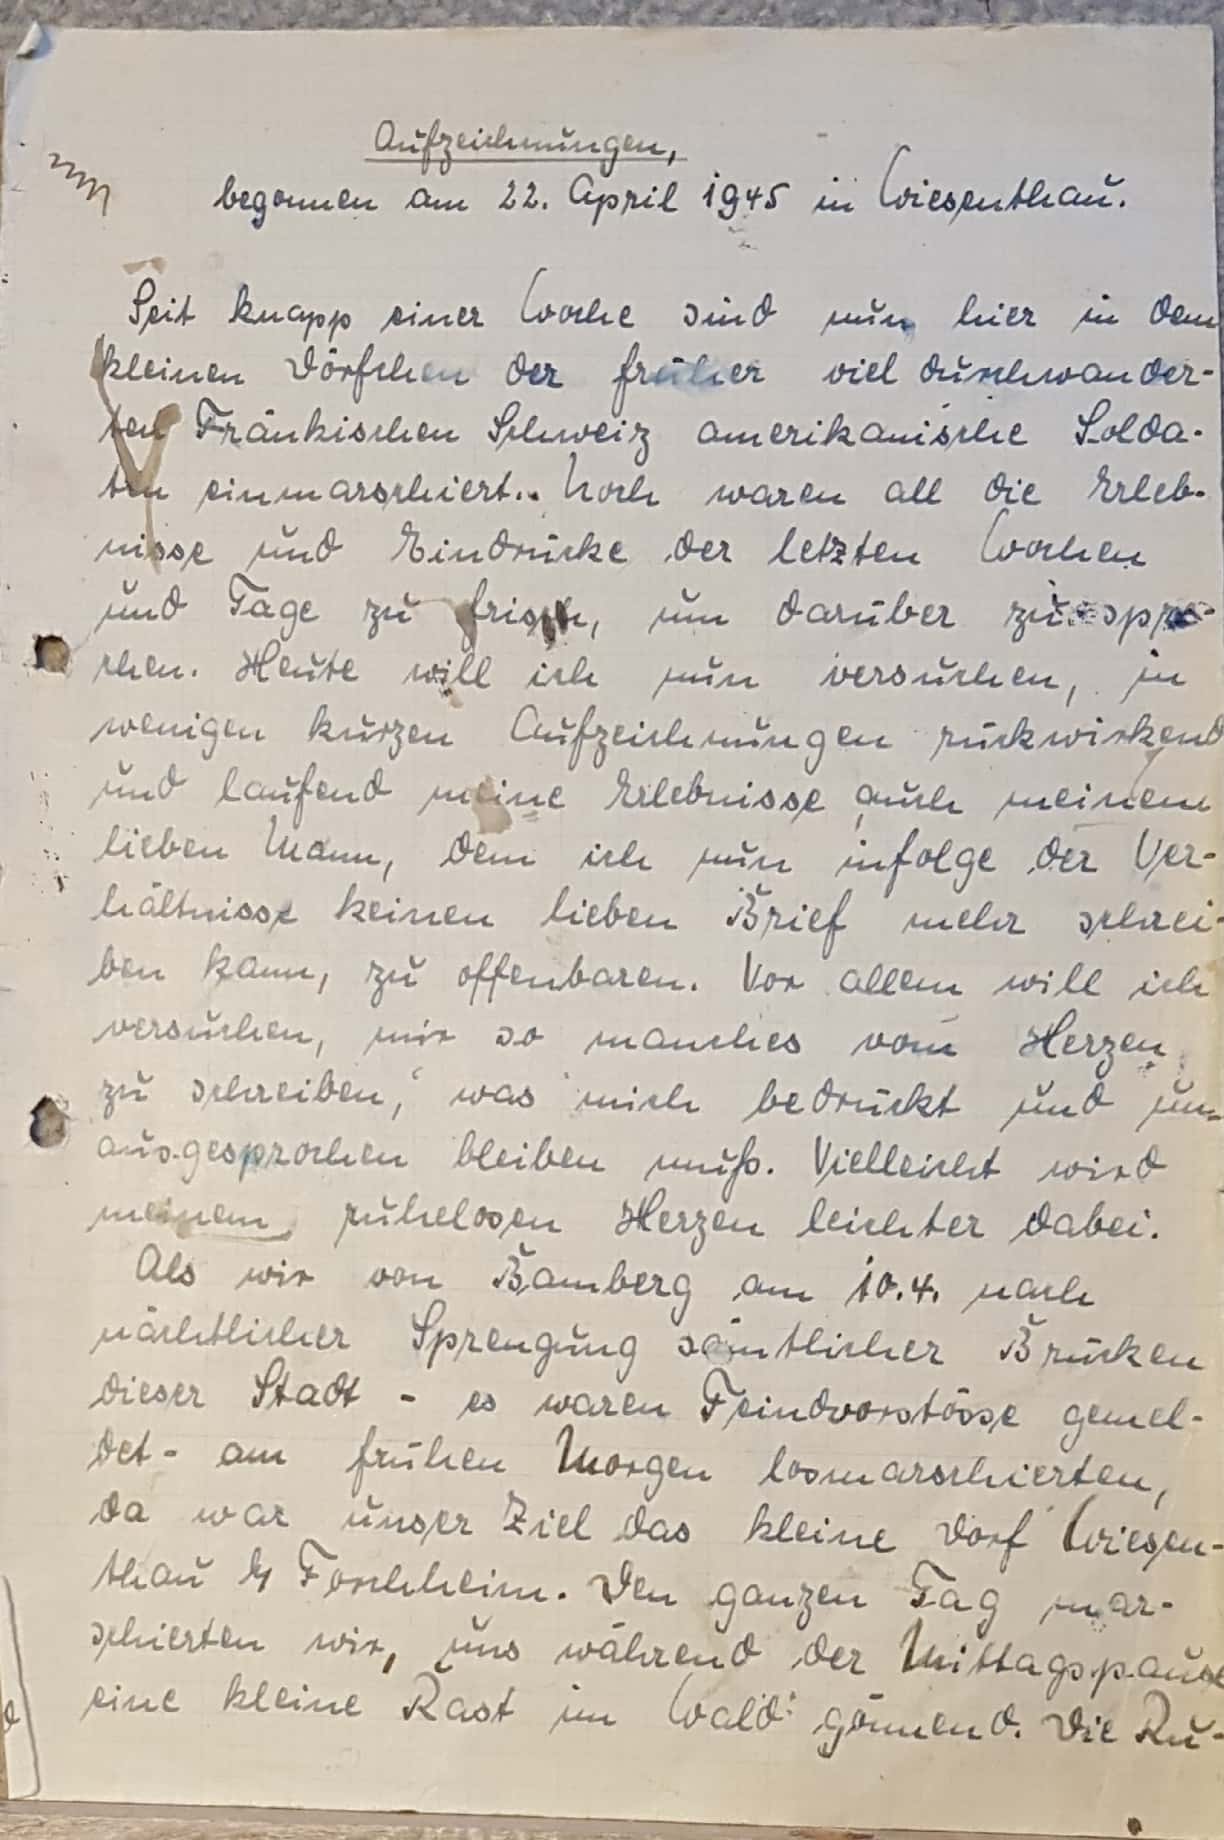 Aufzeichnungen,
begonnen am 22. April 1945 in Wiesenthau.
Seit knapp einer Woche sind nun hier in dem
kleinen Dörfchen der früher viel durchwander-
ten Fränkischen Schweiz amerikanische Solda-
ten einmarschiert.. Noch waren all die Erleb-
nisse und Eindrücke der letzten Wochen
und Tage zu frisch, um darüber zu spre-
chen. Heute will ich nun versuchen, in
wenigen kurzen Aufzeichnungen rückwirkend
und laufend meine Erlebnisse auch meinem
lieben Mann, dem ich nun infolge der Ver-
hältnisse keinen lieben Brief mehr schrei-
ben kann, zu offenbaren. Vor allem will ich
versuchen, mir so manches vom Herzen
zu schreiben, was mich bedrückt und un-
ausgesprochen bleiben muß. Vielleicht wird
meinem ruhelosen Herzen leichter dabei.
Als wir von Bamberg am 10.4. nach
nächtlicher Sprengung sämtlicher Brücken
dieser Stadt - es waren Feindvorstösse gemel-
det - am frühen Morgen losmarschierten,
da war unser Ziel das kleine Dorf Wiesen-
thau b/ Forchheim. Den ganzen Tag mar-
schierten wir, uns während der Mittagspause
eine kleine Rast im Wald gönnend. Die Ru-